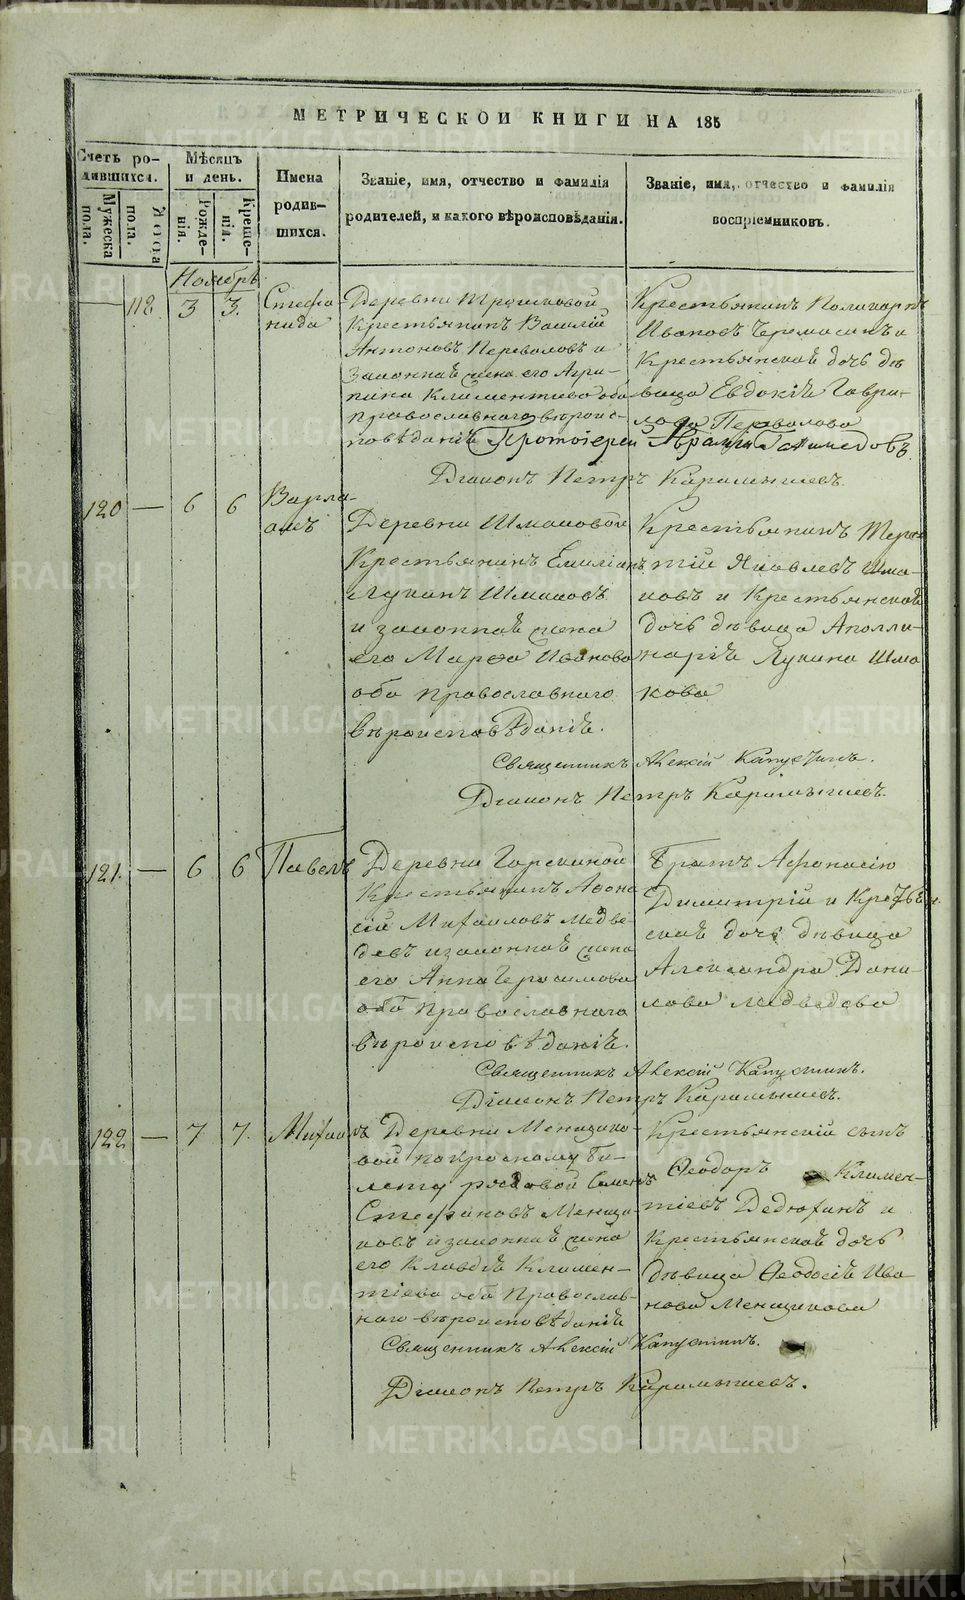 МЕТРИЧЕСКОЙ КНИГИ НА 185
Счетъ родившихся.
Мужеска пола.
Женска пола.
Мѣсяцъ и день.
Рожденія.
Крещенія.
Имена родившихся.
Званіе, имя, отчество и фамилія
родителей, и какого вѣроисповѣданія.
Званіе, имя, отчество и фамилія
воспріемниковъ.
Ноябрь
118 3 3. Стефанида
Деревни
Крестьянинъ Василій
Антоновъ Переваловъ и
Законная жена его Агри-
пина Климентиева оба
православнаго вѣроис-
повѣданія
Крестьянинъ Поликарпъ
Ивановъ и
Крестьянская дочь дѣ
вица Евдокія Гаври-
лова Перевалова
Протоіерей
Діаконъ Петръ Карамышевъ.
120 — 6 6 Варла-
амъ
Деревни Шмаковой
Крестьянинъ Емиліанъ
Лукинъ Шмаковъ
и законная жена
его Марѳа Иванова
оба православнаго
вѣроисповѣданія.
Крестьянинъ Терен
тій Яковлевъ Шма-
ковъ и Крестьянская
дочь дѣвица Аполли-
нарія Лукина Шма
кова
Священникъ Алексій Капустинъ.
Діаконъ Петръ Карамышевъ.
121. — 6 6 Павелъ
Деревни
Крестьянинъ Аѳона
сій Михаиловъ Медве
девъ и законная жена
его Анна Герасимова
оба Православнаго
вѣроисповѣданія.
Братъ Афонасію
Димитрій и Крестьян-
ская дочь дѣвица
Александра Дани-
лова Медведева
Священникъ Алексій Капустинъ.
Діаконъ Петръ Карамышевъ.
122 — 7 7. Михаилъ
Деревни Менщико-
вой
билету рядовой Семенъ
Стефановъ Менщи-
ковъ и законная жена
его Клавдія Климен-
тіева оба Православ-
наго вѣроисповѣданія
Крестьянскій сынъ
Ѳеодоръ Климен-
тіевъ Дедюхинъ и
Крестьянская дочь
дѣвица Ѳеодосія Ива
нова Менщикова
Священникъ Алексій Капустинъ.
Діаконъ Петръ Карамышевъ.
METRIKI.GASO-URAL.RU